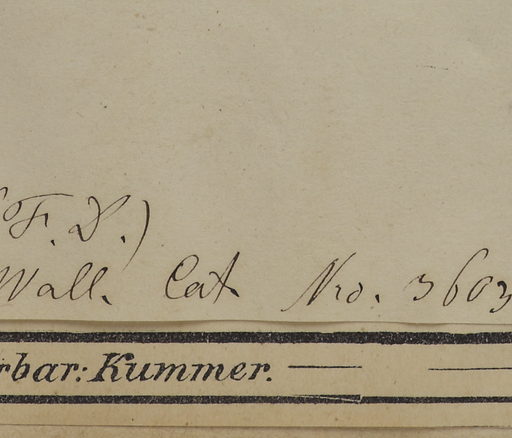 (F. D.)
Wall. Cat. Nro. 3603
rbar: Kummer.